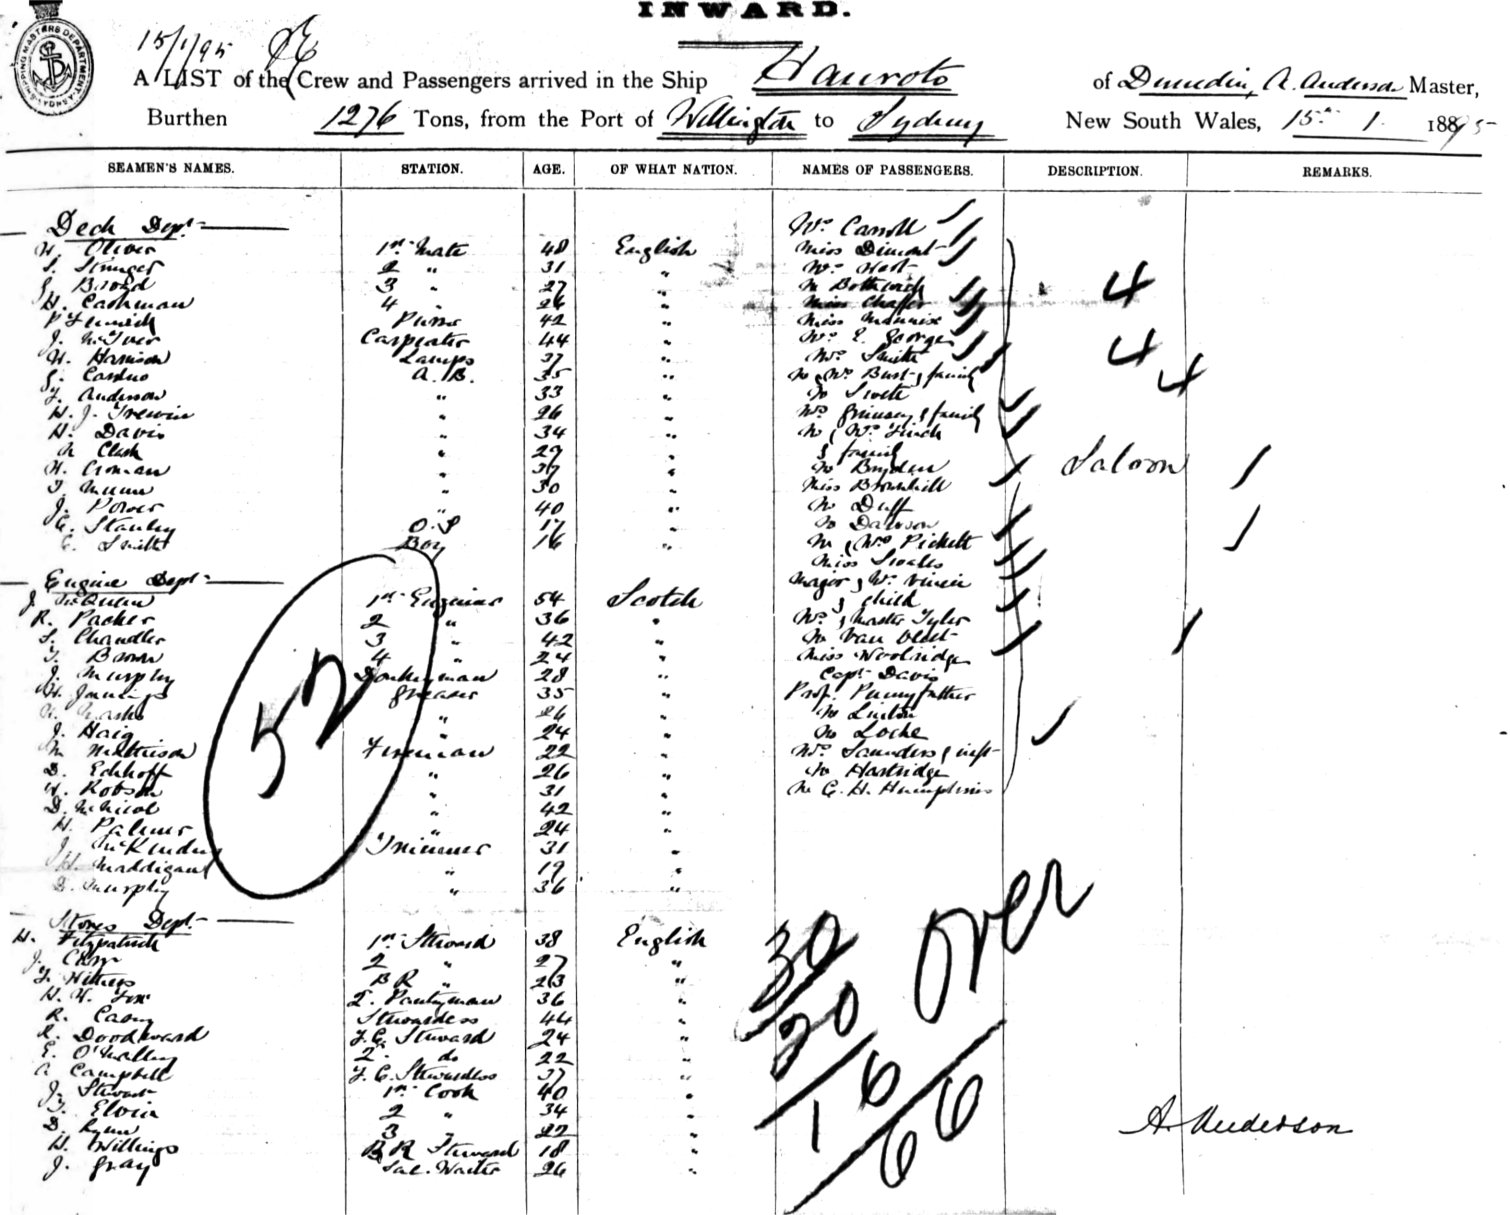 INWARD.
SHIPPING MASTERS DEPARTMENT SYDNEY
15/1/95
A LIST of the Crew and Passengers arrived in the Ship Hauroto of Dunedin, A. Anderson Master,
Burthen 1276 Tons, from the Port of Wellington to Sydney New South Wales, 15th 1 1895
SEAMEN'S NAMES. STATION. AGE. OF WHAT NATION. NAMES OF PASSENGERS. DESCRIPTION. REMARKS.
Deck Dept Mrs Carroll
Oliver 1st Mate 48 English Miss Dimont
S. Stringer 2 " 31 " Mrs West
Broad 3 " 27 " Mr Bothwick 4
H. Cashman 4 " 26 " Miss Chaffer
42 " Miss Mannix
J. McIver Carpenter 44 " Mrs E. George
H. Harrison Lamps 37 " Mrs Smith 4
A.B. 35 " Mr & Mrs Burt & family 4
Anderson " 33 " Mr
H. J. Trewin " 26 " Mrs & family
H. Davis " 34 " Mr & Mrs Finch
Clark " 29 " & family
" 37 " Mr Bryden Saloon 1
" 30 " Miss Brownhill
J. Power " 40 " Mr Duff
Stanley O.S 17 " Mr Dawson 1
Smith Boy 16 " Mr & Mrs Pickett
Miss
Engine Dept Major & Mrs
1st Engineer 54 Scotch & child
R. Packer 2 " 36 " Mrs & Master Tyler
S. Chandler 3 " 42 " Mr Van 1
T. Brown 4 " 24 " Miss Woolridge
J. Murphy Donkeyman 28 " Capt Davis
Jennings Greaser 35 " Prof. Pennyfather
" 26 " Mr Linton
J. Haig " 24 " Mr Locke
Mathieson Fireman 22 " Mrs Saunders & inft
D. Eckhoff " 26 " Mr Hartridge
Robson " 31 " Mr C. H. Humphries
D. McNicol " 42 "
H. Palmer " 24 "
Trimmer 31 "
Maddigan " 19 "
Murphy " 36 "
52
Stores Dept
H. Fitzpatrick 1st Steward 38 English
2 " 27 "
BR " 23 "
2. Pantryman 36 "
R. Casey Stewardess 44 "
R. Woodward F.C. Steward 24 "
E. O'Malley 2. do 22 "
A Campbell F.C. Stewardess 37 "
J. Stewart 1st Cook 40 "
Elvin 2 " 34 "
3 " 22 "
H. Willings BR Steward 18 "
J. Gray Sal. Waiter 26 "
30
20
16
66
Over
A. Anderson